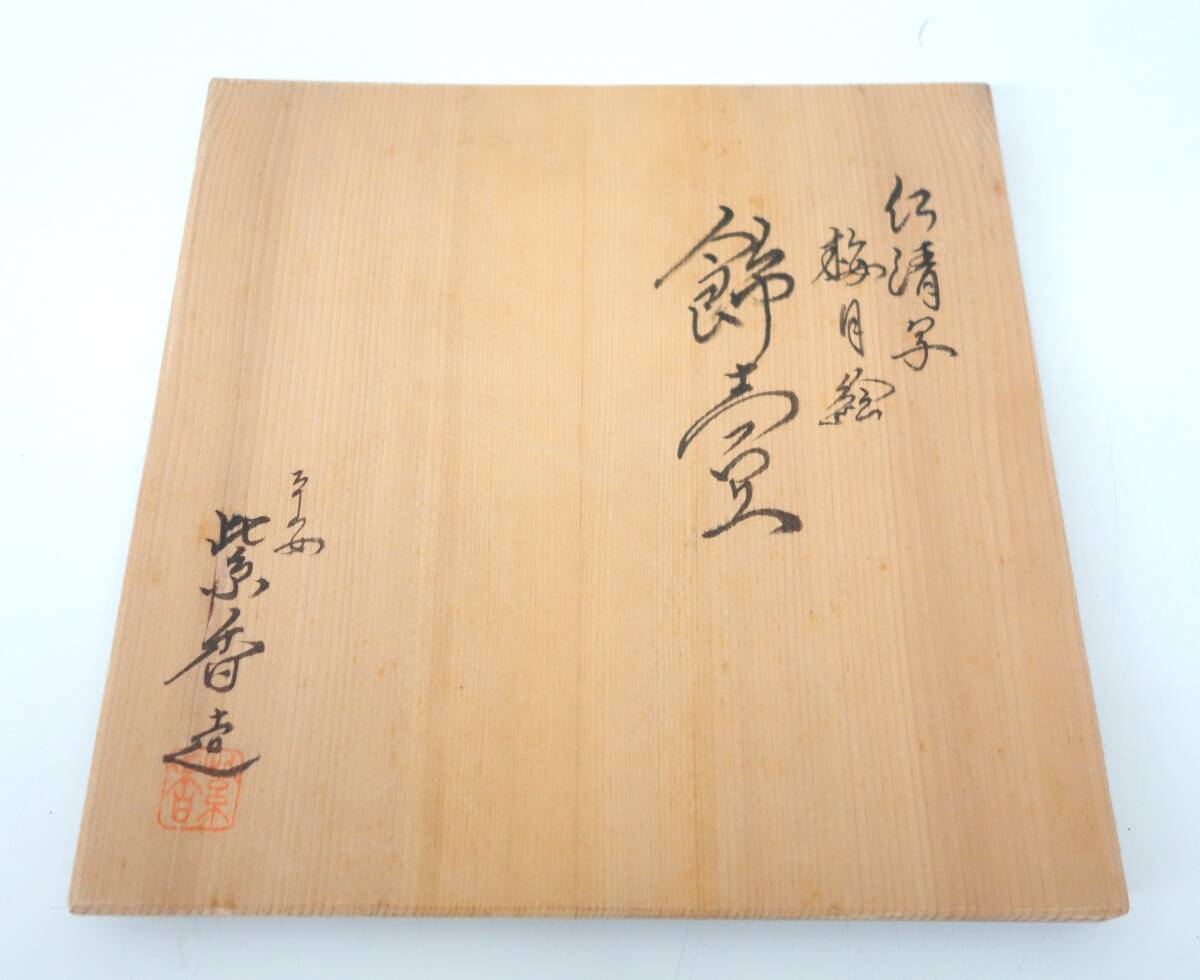 仁清写
梅月絵
飾壷
平安
紫香造
紫香